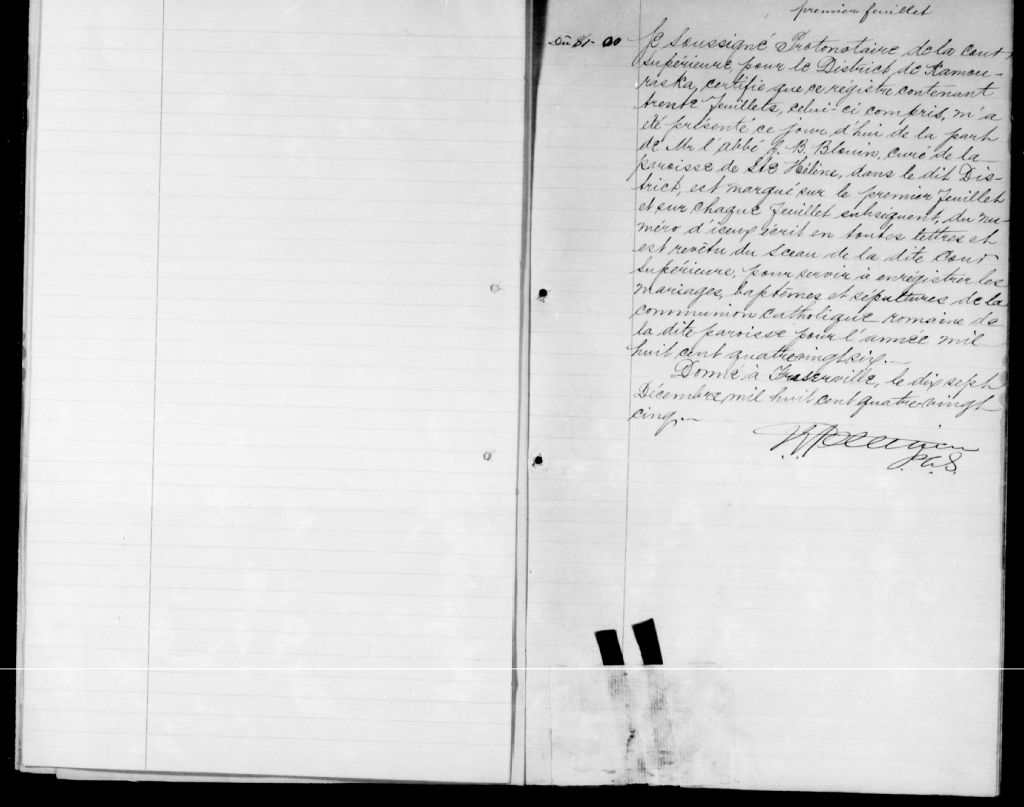 premier feuillet
Dû $1-00
Je Soussigné Protonotaire de la cour
Supérieure, pour le District de Kamou-
raska, certifie que ce registre contenant
trente feuillets, celui-ci compris, m'a
été présenté ce jour d'hui de la part
de Mr l'abbé J. B. Blouin, curé de la
paroisse de Ste Hélène, dans le dit Dis-
trict, est marqué sur le premier feuillet
et sur chaque feuillet subséquent, du nu-
méro d'iceux écrit en toutes lettres et
est revêtu du Sceau de la dite Cour
Supérieure, pour servir à enrégistrer les
mariages, baptêmes et sépultures de la
communion catholique romaine de
la dite paroisse pour l'année mil
huit cent quatre vingt six.
Donné à Fraserville, le dix sept
Décembre mil huit cent quatre vingt
cinq.
P.C.S.